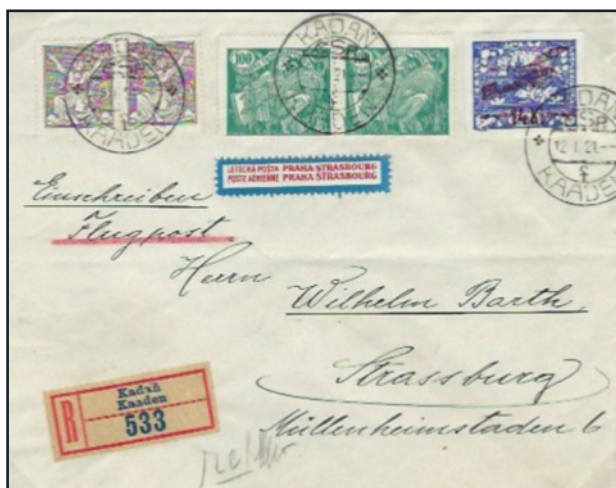 KADAŇ
ČSR
KAADEN
100 100
KADAŇ
ČSR
KAADEN
14 Kč
KADAŇ
ČSR
12. I. 21.--
KAADEN
LETECKÁ POŠTA PRAHA-STRASBOURG
POSTE AÉRIENNE PRAHA-STRASBOURG
Einschreiben
Flugpost
Herrn
Wilhelm Barth,
Strassburg
Müllenheimstaden 6
R
Kadaň
Kaaden
533